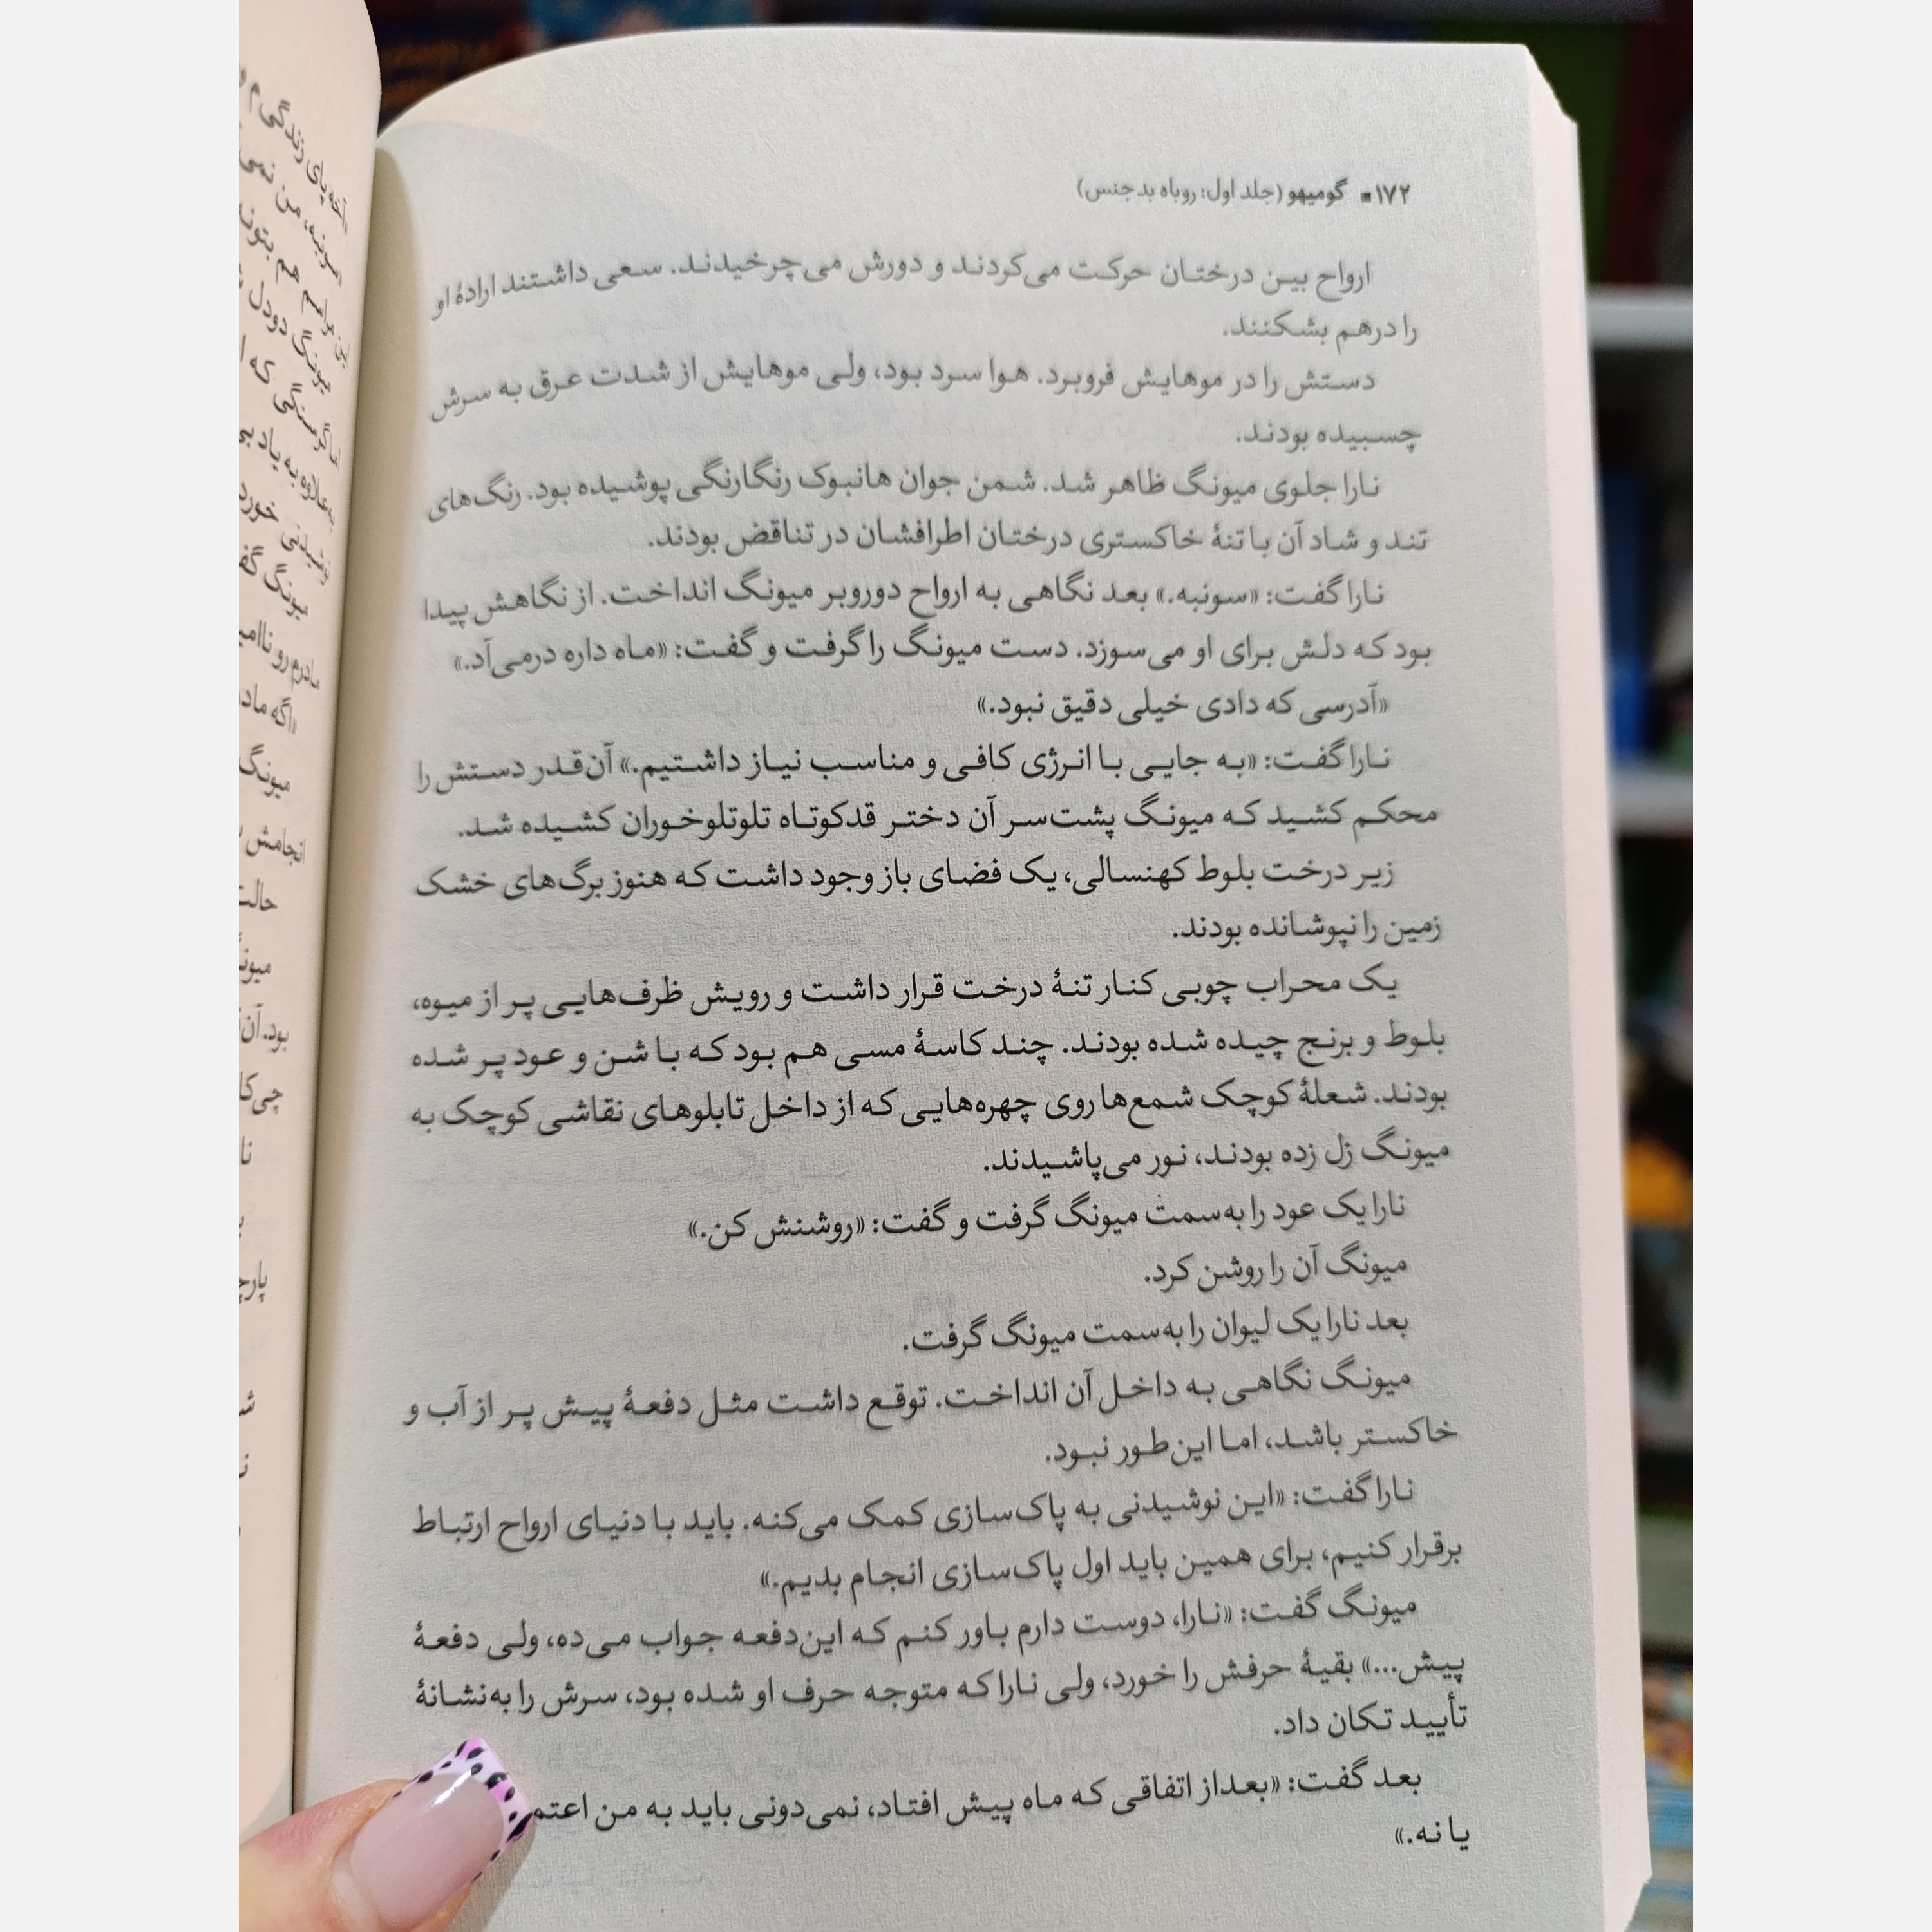 ۱۷۲ ■ گومیهو (جلد اول: روباه بدجنس)
ارواح بین درختان حرکت می‌کردند و دورش می‌چرخیدند. سعی داشتند ارادهٔ او
را درهم بشکنند.
دستش را در موهایش فروبرد. هوا سرد بود، ولی موهایش از شدت عرق به سرش
چسبیده بودند.
نارا جلوی میونگ ظاهر شد. شمن جوان هانبوک رنگارنگی پوشیده بود. رنگ‌های
تند و شاد آن با تنهٔ خاکستری درختان اطرافشان در تناقض بودند.
نارا گفت: «سونبه.» بعد نگاهی به ارواح دوروبر میونگ انداخت. از نگاهش پیدا
بود که دلش برای او می‌سوزد. دست میونگ را گرفت و گفت: «ماه داره درمی‌آد.»
«آدرسی که دادی خیلی دقیق نبود.»
نارا گفت: «به جایی با انرژی کافی و مناسب نیاز داشتیم.» آن‌قدر دستش را
محکم کشید که میونگ پشت‌سر آن دختر قدکوتاه تلوتلوخوران کشیده شد.
زیر درخت بلوط کهنسالی، یک فضای باز وجود داشت که هنوز برگ‌های خشک
زمین را نپوشانده بودند.
یک محراب چوبی کنار تنهٔ درخت قرار داشت و رویش ظرف‌هایی پر از میوه،
بلوط و برنج چیده شده بودند. چند کاسهٔ مسی هم بود که با شن و عود پر شده
بودند. شعلهٔ کوچک شمع‌ها روی چهره‌هایی که از داخل تابلوهای نقاشی کوچک به
میونگ زل زده بودند، نور می‌پاشیدند.
نارا یک عود را به‌سمت میونگ گرفت و گفت: «روشنش کن.»
میونگ آن را روشن کرد.
بعد نارا یک لیوان را به‌سمت میونگ گرفت.
میونگ نگاهی به داخل آن انداخت. توقع داشت مثل دفعهٔ پیش پر از آب و
خاکستر باشد، اما این‌طور نبود.
نارا گفت: «این نوشیدنی به پاک‌سازی کمک می‌کنه. باید با دنیای ارواح ارتباط
برقرار کنیم، برای همین باید اول پاک‌سازی انجام بدیم.»
میونگ گفت: «نارا، دوست دارم باور کنم که این‌دفعه جواب می‌ده، ولی دفعهٔ
پیش...» بقیهٔ حرفش را خورد، ولی نارا که متوجه حرف او شده بود، سرش را به‌نشانهٔ
تأیید تکان داد.
بعد گفت: «بعداز اتفاقی که ماه پیش افتاد، نمی‌دونی باید به من
یا نه.»